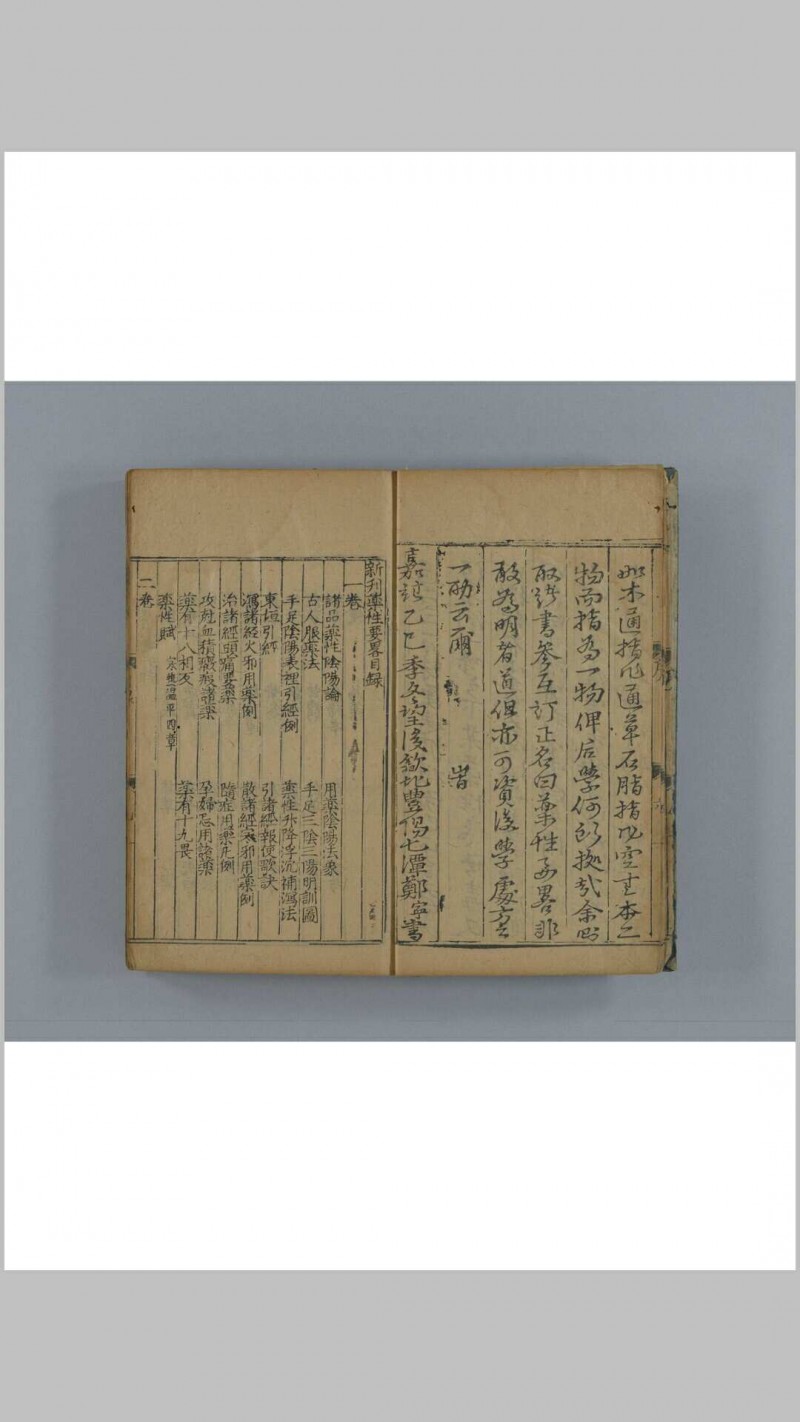 如木通指為通草石脂指為空青本二
物而指為一物俾后學何所據哉余
取諸書參互訂正名曰藥性要畧非
敢為明者道但亦可資後學處方之
一助云爾 時
嘉靖乙巳季冬望後歙北豐陽七潭鄭寧書
新刋藥性要畧目録
一卷
諸品藥性陰陽論 用藥陰陽法象
古人服藥法 手足三陰三陽明訓圖
手足陰陽表裡引經例 藥性升降浮沉補瀉法
東垣引經 引諸經報使歌訣
瀉諸經火邪用藥例 散諸經寒邪用藥例
治諸經頭痛要藥 隨症用藥凡例
攻尅血積癥瘕諸藥 孕婦忌用諸藥
藥有十八相反 藥有十九畏
藥性賦 寒熱温平四章
二卷